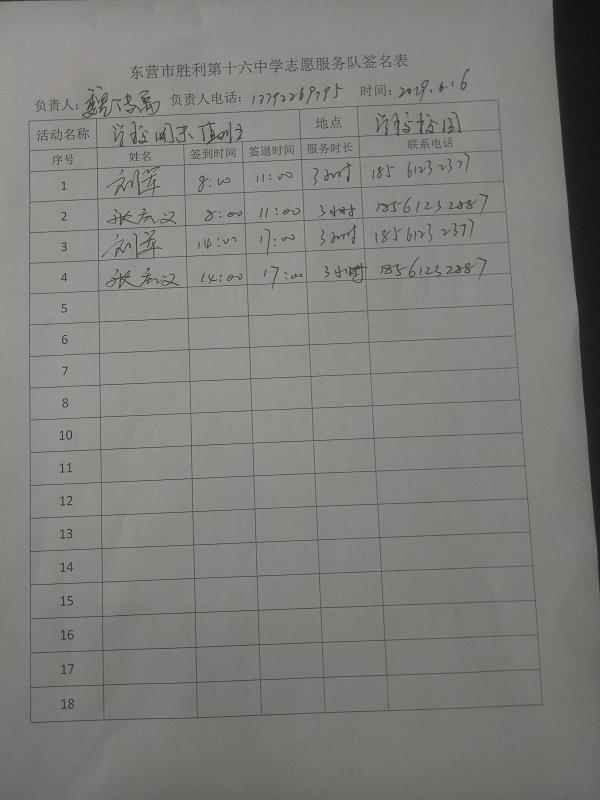 东营市胜利第十六中学志愿服务队签名表
负责人： 负责人电话：13792269795 时间：
活动名称 学校 值班 地点 学校校园
序号 姓名 签到时间 签退时间 服务时长 联系电话
1 刘军 8:00 11:00 3小时 185 6123 2377
2 张 义 8:00 11:00 3小时 18561232887
3 刘军 14:00 17:00 3小时 185 6123 2377
4 张 义 14:00 17:00 3小时 18561232887
5
6
7
8
10
11
12
13
14
15
16
17
18